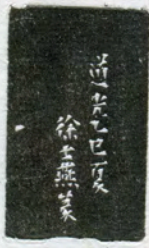 道光乙巳夏
徐士燕篆